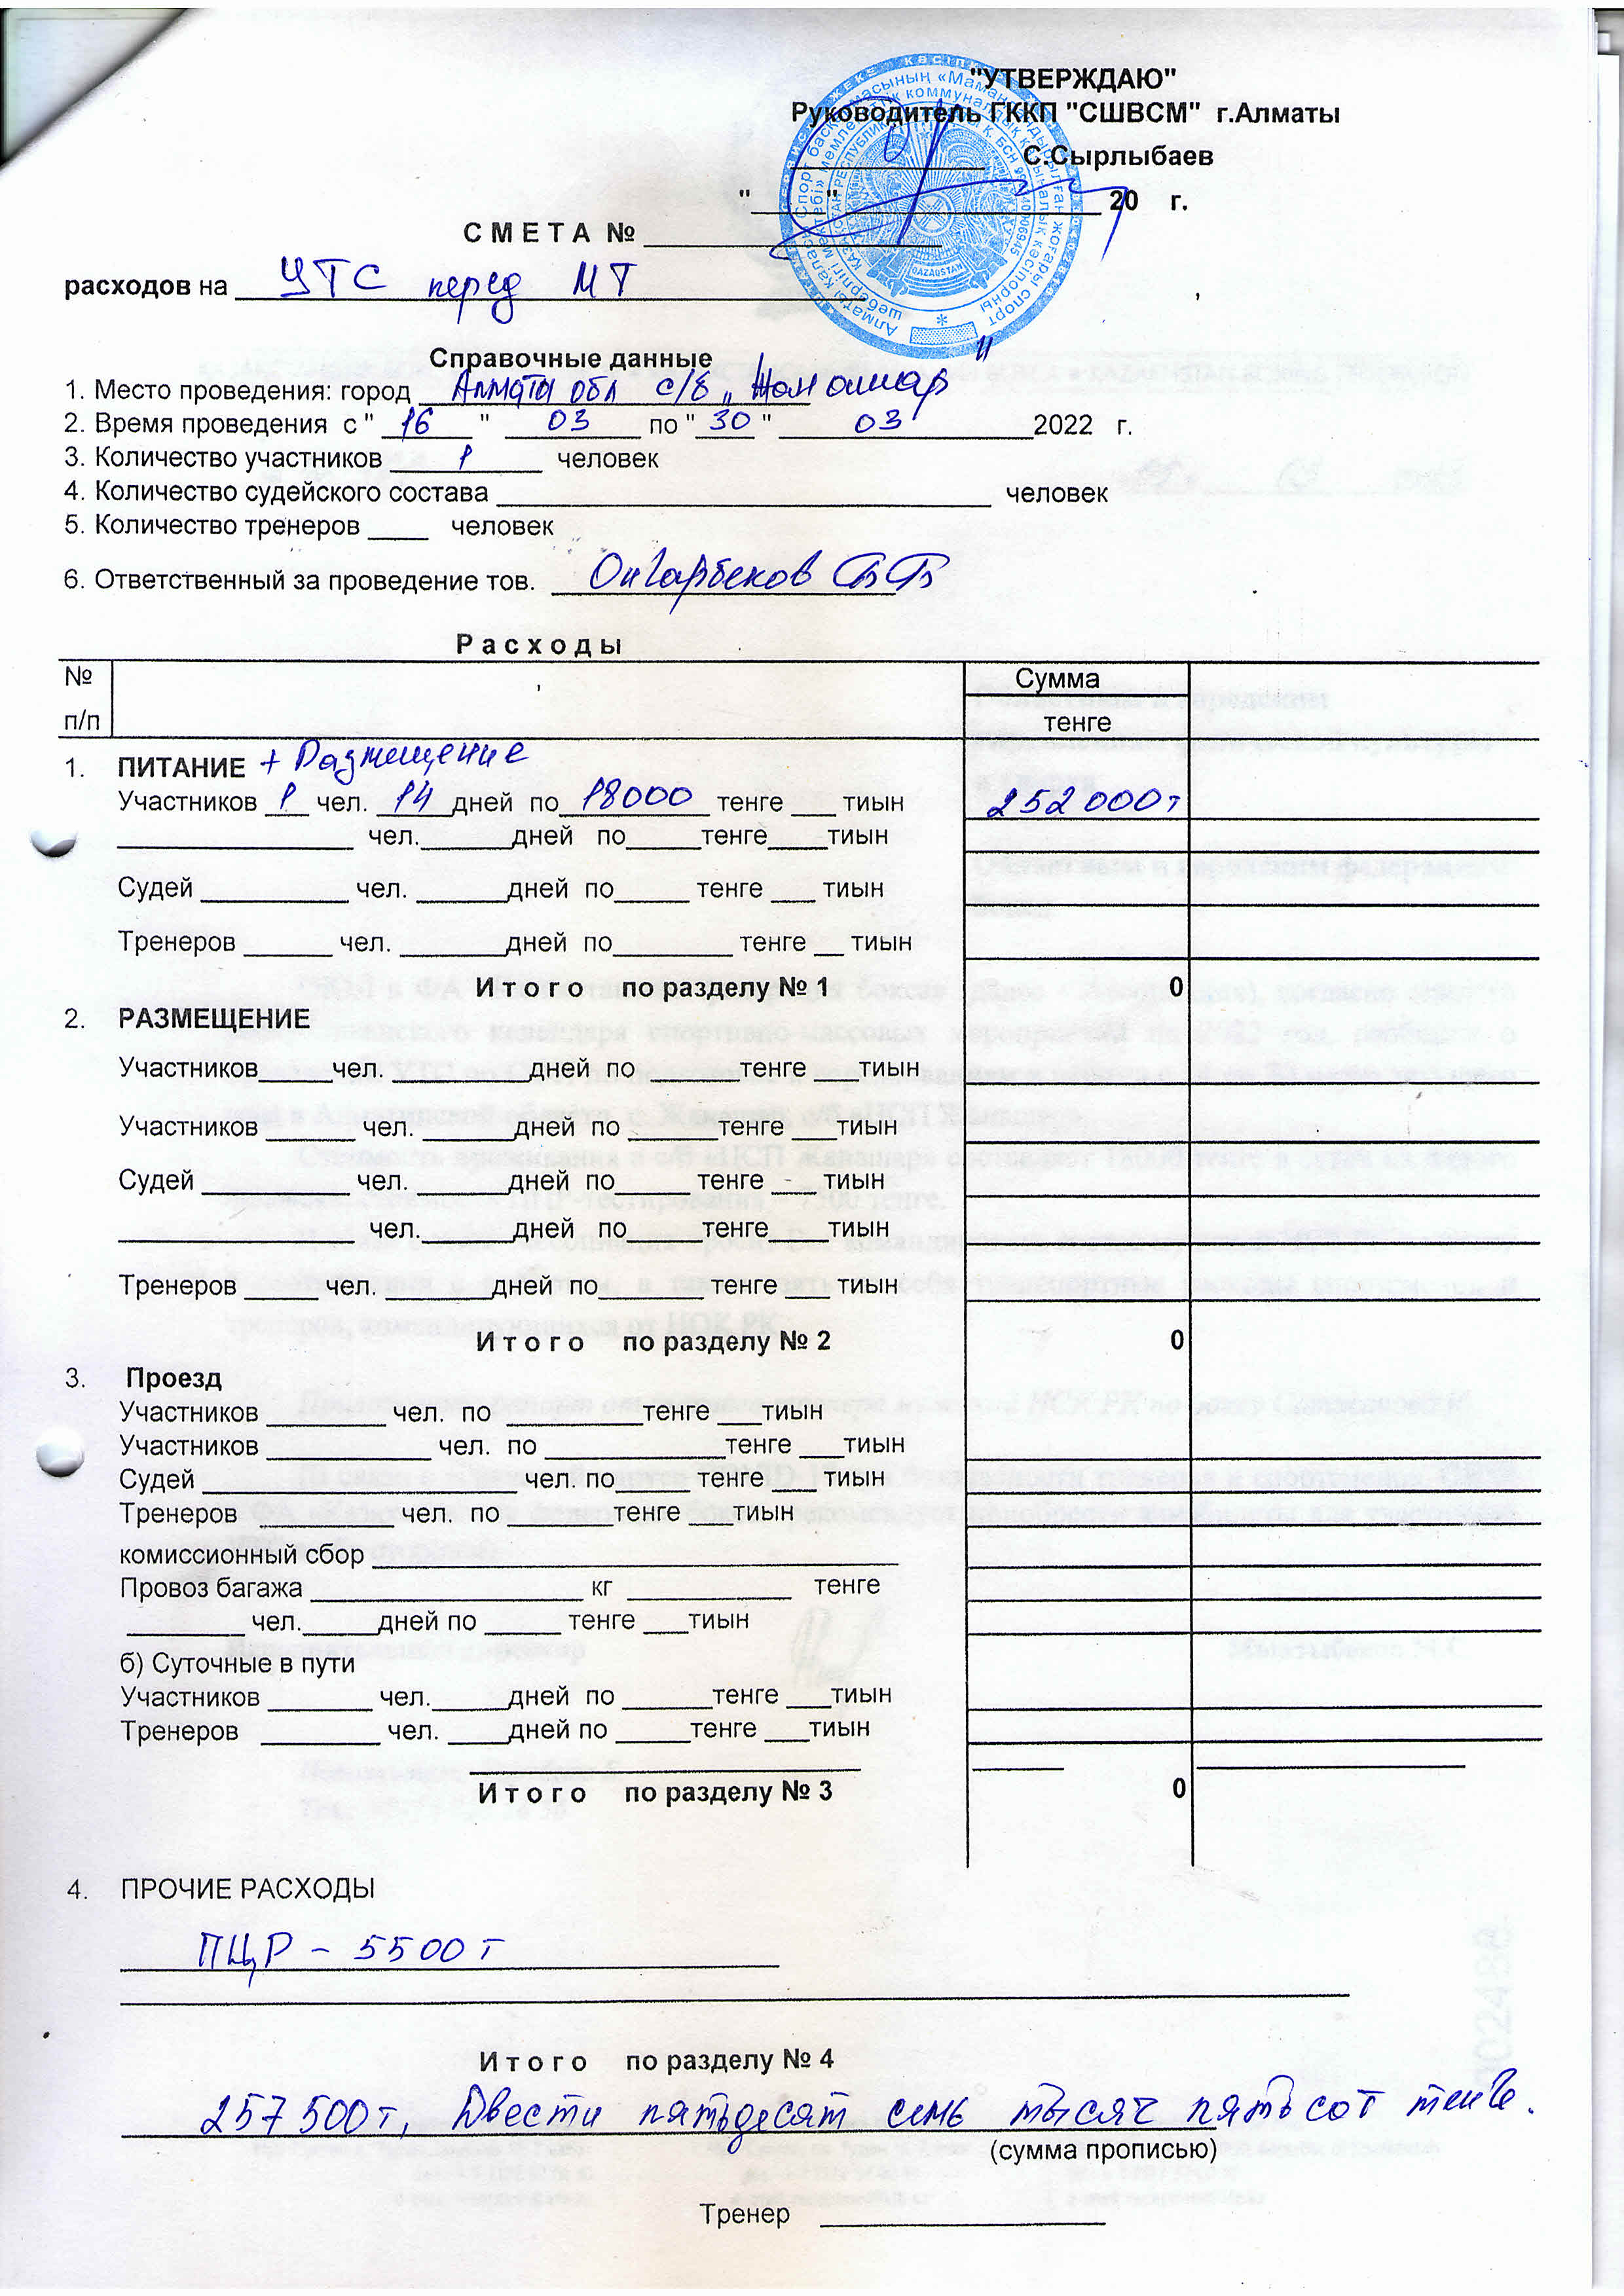 "УТВЕРЖДАЮ"
Руководитель ГККП "СШВСМ" г.Алматы
_____________ С.Сырлыбаев
"_____" __________________ 20 г.
С М Е Т А № ____________________
расходов на УТС перед МТ
Справочные данные
1. Место проведения: город Алматы обл с/б "Жанашар"
2. Время проведения с " 16 " 03 по " 30 " 03 2022 г.
3. Количество участников 1 человек
4. Количество судейского состава _________________________________ человек
5. Количество тренеров ____ человек
6. Ответственный за проведение тов. Онгарбеков Б Б
Р а с х о д ы
№ п/п Сумма
тенге
1. ПИТАНИЕ + Размещение
Участников 1 чел. 14 дней по 18000 тенге ___ тиын 252 000 т
________________ чел.______дней по_____тенге____тиын
Судей __________ чел. ______дней по_____ тенге ___ тиын
Тренеров ______ чел. _______дней по________ тенге __ тиын
И т о г о по разделу № 1 0
2. РАЗМЕЩЕНИЕ
Участников_____чел. _______дней по ______тенге ___тиын
Участников ______ чел. ______дней по ______тенге ___тиын
Судей __________ чел. ______дней по_____ тенге ___ тиын
________________ чел.______дней по_____тенге____тиын
Тренеров _____ чел. _______дней по_______тенге ___ тиын
И т о г о по разделу № 2 0
3. Проезд
Участников ________ чел. по _________тенге ___тиын
Участников ___________ чел. по ____________тенге ___тиын
Судей _____________________чел. по_____ тенге ___ тиын
Тренеров _________ чел. по _______тенге ___тиын
комиссионный сбор ___________________________________
Провоз багажа __________________ кг ___________ тенге
________ чел._____дней по _____ тенге ___тиын
б) Суточные в пути
Участников _______ чел._____дней по ______тенге ___тиын
Тренеров ________ чел. ____дней по _____тенге ___тиын
И т о г о по разделу № 3 0
4. ПРОЧИЕ РАСХОДЫ
ПЦР - 5500 т
И т о г о по разделу № 4
257 500 т, Двести пятьдесят семь тысяч пятьсот тенге.
(сумма прописью)
Тренер ___________________